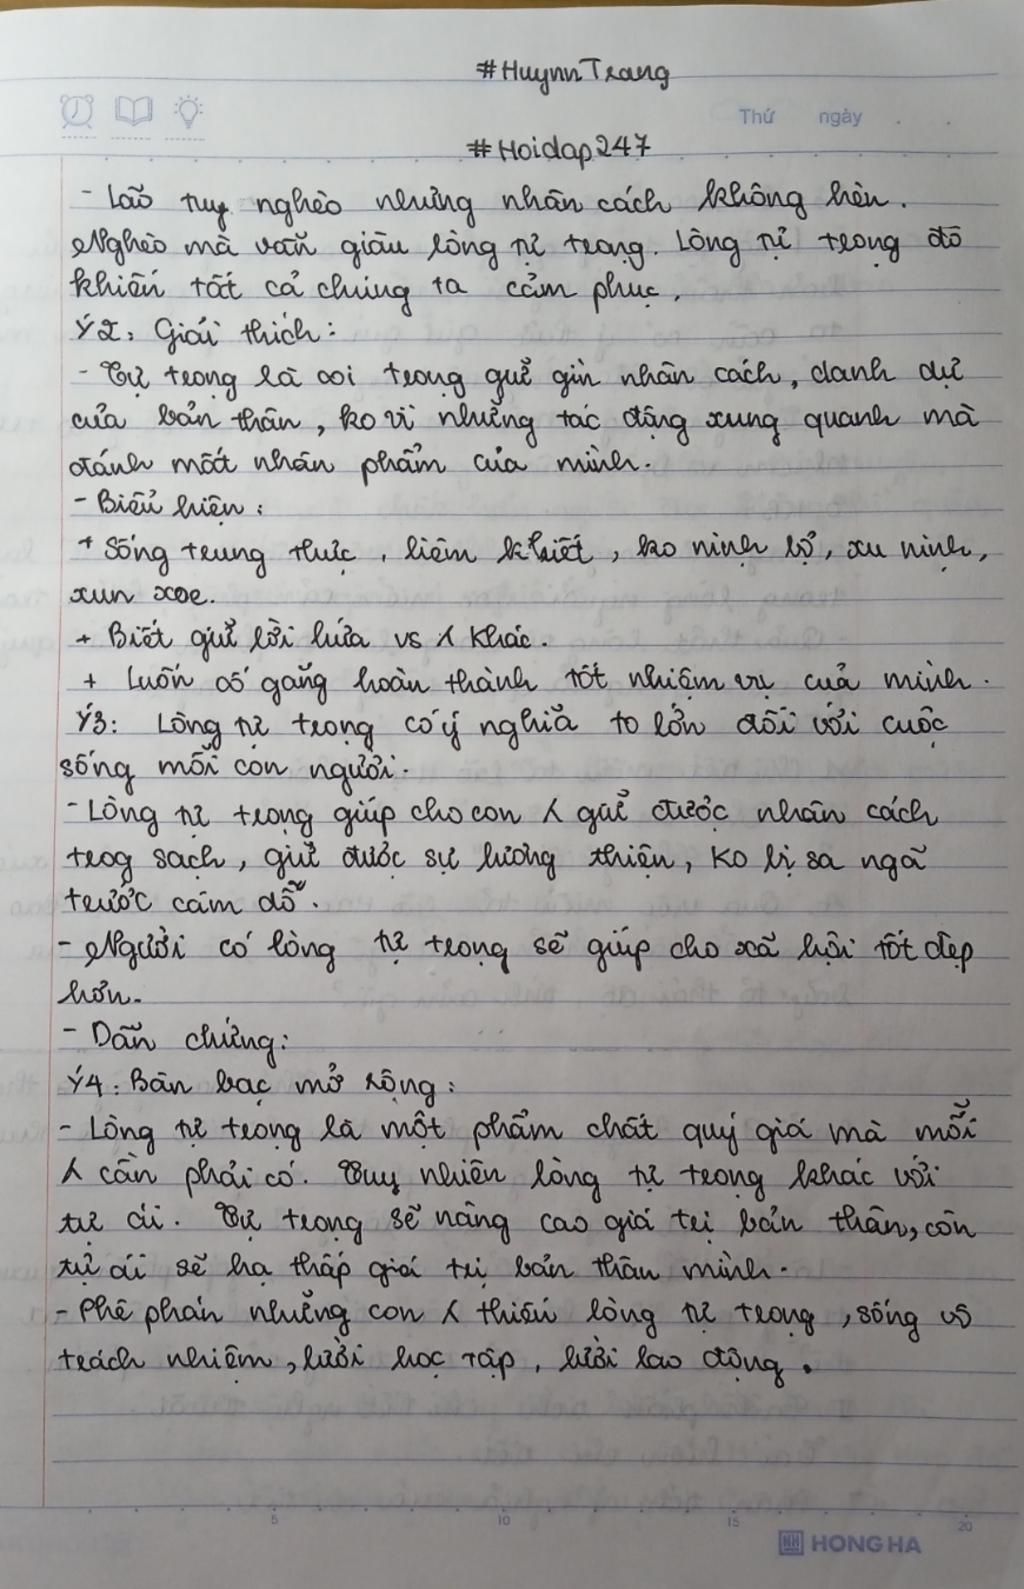 #HuynnTrang
Thứ ngày
#Hoidap247
- Lão tuy nghèo nhưng nhân cách không hèn.
Nghèo mà vẫn giàu lòng tự trọng. Lòng tự trọng đó
khiến tất cả chúng ta cảm phục.
Ý2: Giải thích:
- Tự trọng là coi trọng giữ gìn nhân cách, danh dự
của bản thân, ko vì những tác động xung quanh mà
đánh mất nhân phẩm của mình.
- Biểu hiện:
+ Sống trung thực, liêm khiết, ko nịnh bợ, xu nịnh,
xun xoe.
+ Biết giữ lời hứa vs ʎ khác.
+ Luôn cố gắng hoàn thành tốt nhiệm vụ của mình.
Ý3: Lòng tự trọng có ý nghĩa to lớn đối với cuộc
sống mỗi con người.
- Lòng tự trọng giúp cho con ʎ giữ được nhân cách
trog sạch, giữ được sự lương thiện, ko bị sa ngã
trước cám dỗ.
- Người có lòng tự trọng sẽ giúp cho xã hội tốt đẹp
hơn.
- Dẫn chứng:
Ý4: Bàn bạc mở rộng:
- Lòng tự trọng là một phẩm chất quý giá mà mỗi
ʎ cần phải có. Tuy nhiên lòng tự trọng khác với
tự ái. Tự trọng sẽ nâng cao giá trị bản thân, còn
tự ái sẽ hạ thấp giá trị bản thân mình.
- Phê phán những con ʎ thiếu lòng tự trọng, sống vô
trách nhiệm, lười học tập, lười lao động.
5 10 15 20
HONG HA